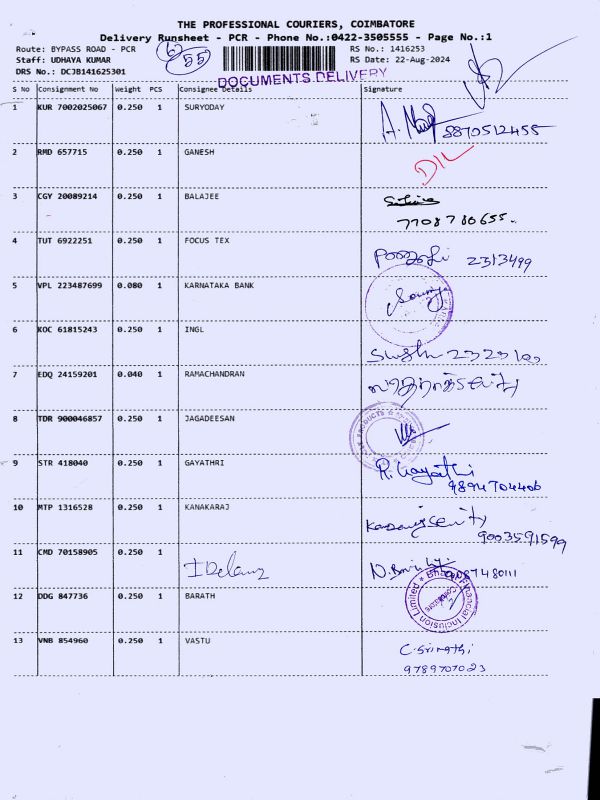 THE PROFESSIONAL COURIERS, COIMBATORE
Delivery Runsheet - PCR - Phone No.:0422-3505555 - Page No.:1
Route: BYPASS ROAD - PCR
Staff: UDHAYA KUMAR
DRS No.: DCJB141625301
55
RS No.: 1416253
RS Date: 22-Aug-2024
DOCUMENTS DELIVERY
S No Consignment No Weight PCS Consignee Details Signature
1 KUR 7002025067 0.250 1 SURYODAY 8870512455
2 RMD 657715 0.250 1 GANESH D/L
3 CGY 20089214 0.250 1 BALAJEE
7708780655.
4 TUT 6922251 0.250 1 FOCUS TEX 2313499
5 VPL 223487699 0.080 1 KARNATAKA BANK Sowmya
6 KOC 61815243 0.250 1 INGL
7 EDQ 24159201 0.040 1 RAMACHANDRAN
8 TDR 900046857 0.250 1 JAGADEESAN
9 STR 418040 0.250 1 GAYATHRI R. Gayathri
9894704406
10 MTP 1316528 0.250 1 KANAKARAJ
9003591599
11 CMD 70158905 0.250 1
12 DDG 847736 0.250 1 BARATH Bharat Financial Inclusion Limited
Coimbatore
13 VNB 854960 0.250 1 VASTU
9789707023